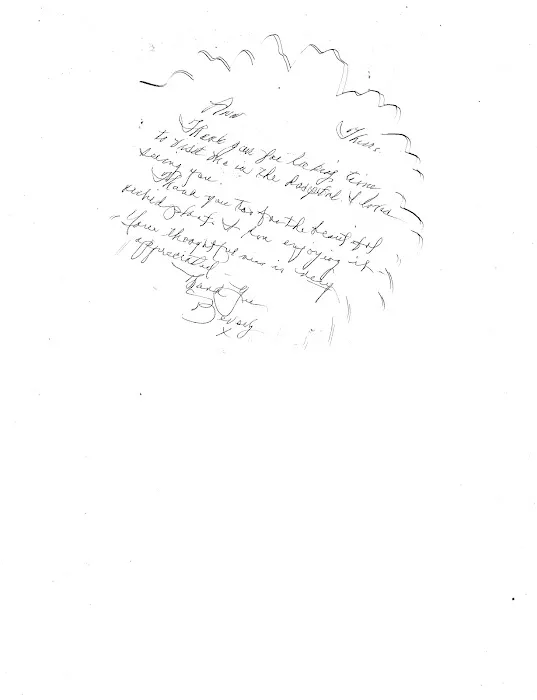 Ann
Thurs.
Thank you for taking time
to visit me in the hospital I loved
seeing you.
Thank you too for the beautiful
orchid plant. I am enjoying it.
Your thoughtfulness is very
appreciated
Thank You
Beverly
X